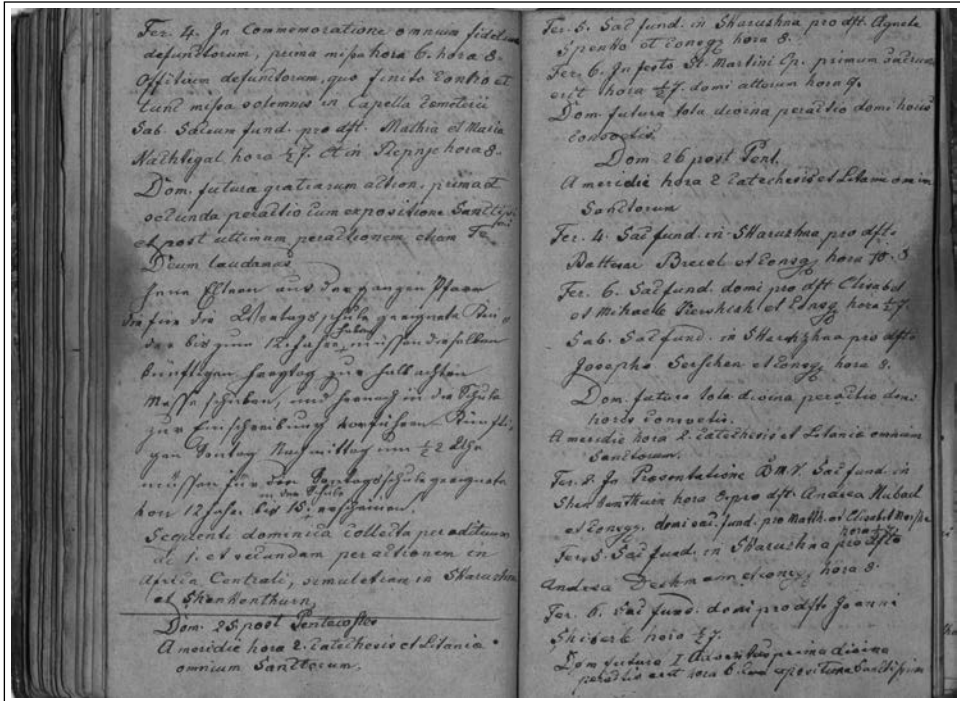 Fer. 4. In Commemoratione omnium fidelium
defunctorum, prima missa hora 6. hora 8.
Officium defunctorum, quo finito Contio et
tunc missa solemnis in Capella Cemeterii
Sab. Sacrum fund. pro dft. Mathia et Maria
Nachtigal hora ½7. et in hora 8.
Dom. futura gratiarum action. prima et
secunda peractio cum expositione Sanctissi
et post ultimam peractionem etiam Te
Deum laudamus
Jene Eltern aus der ganzen Pfarr
die für die Werktagsschule geeignete Kin
der bis zum 12. Jahre haben, müssen dieselben
künftigen zur halb achten
Messe schicken, und hernach in die Schule
zur Einschreibung vorführen. Künfti
gen Sontag Nachmittag um ½2 Uhr
müssen für die Sontagsschule geeignete
von 12 Jahre bis 15. in der Schule erscheinen.
Sequenti dominica collecta
ad 1. et secundam peractionem in
Africa Centrali, simul etiam in Skaruzhna
et Shenkonthurn.
Dom. 25 post Pentecostes
A meridie hora 2. Catechesis et Litaniae
omnium Sanctorum.
Fer. 5. Sac fund. in Skaruzhna pro dft. Agneta
Spenko et Consg hora 8.
Fer. 6. In festo St. Martini Ep. primum sacrum
erit hora ½7. domi alterum hora 9.
Dom. futura tota divina peractio domi horis
consvetis.
Dom. 26 post Pent.
A meridie hora 2 Catechesis et Litaniae omnium
Sanctorum
Fer. 4. Sac fund. in Skaruzhna pro dft.
Baltesar et Consg. hora 8
Fer. 6. Sac fund. domi pro dft Elisabet
et Michaele et Consg hora ½7.
Sab. Sac fund. in Skaruzhna pro dfto
Josepho Serschen et Consg hora 8.
Dom. futura tota divina peractio domi
horis consvetis.
A meridie hora 2. Catechesis et Litaniae omnium
Sanctorum.
Fer. 2. In Presentatione B.M.V. Sac fund. in
Shenkonthurn hora 8. pro dft. Andrea Hubad
et Consgg. domi sac. fund. pro Math. et Elisabet
hora ½7.
Fer. 5. Sac fund. in Skaruzhna pro dfto
Andrea et Consg. hora 8.
Fer. 6. Sac fund. domi pro dfto Joanni
Shiberle hora ½7.
Dom futura I Adventus prima divina
peractio erit hora 6. cum expositione Sanctissimi